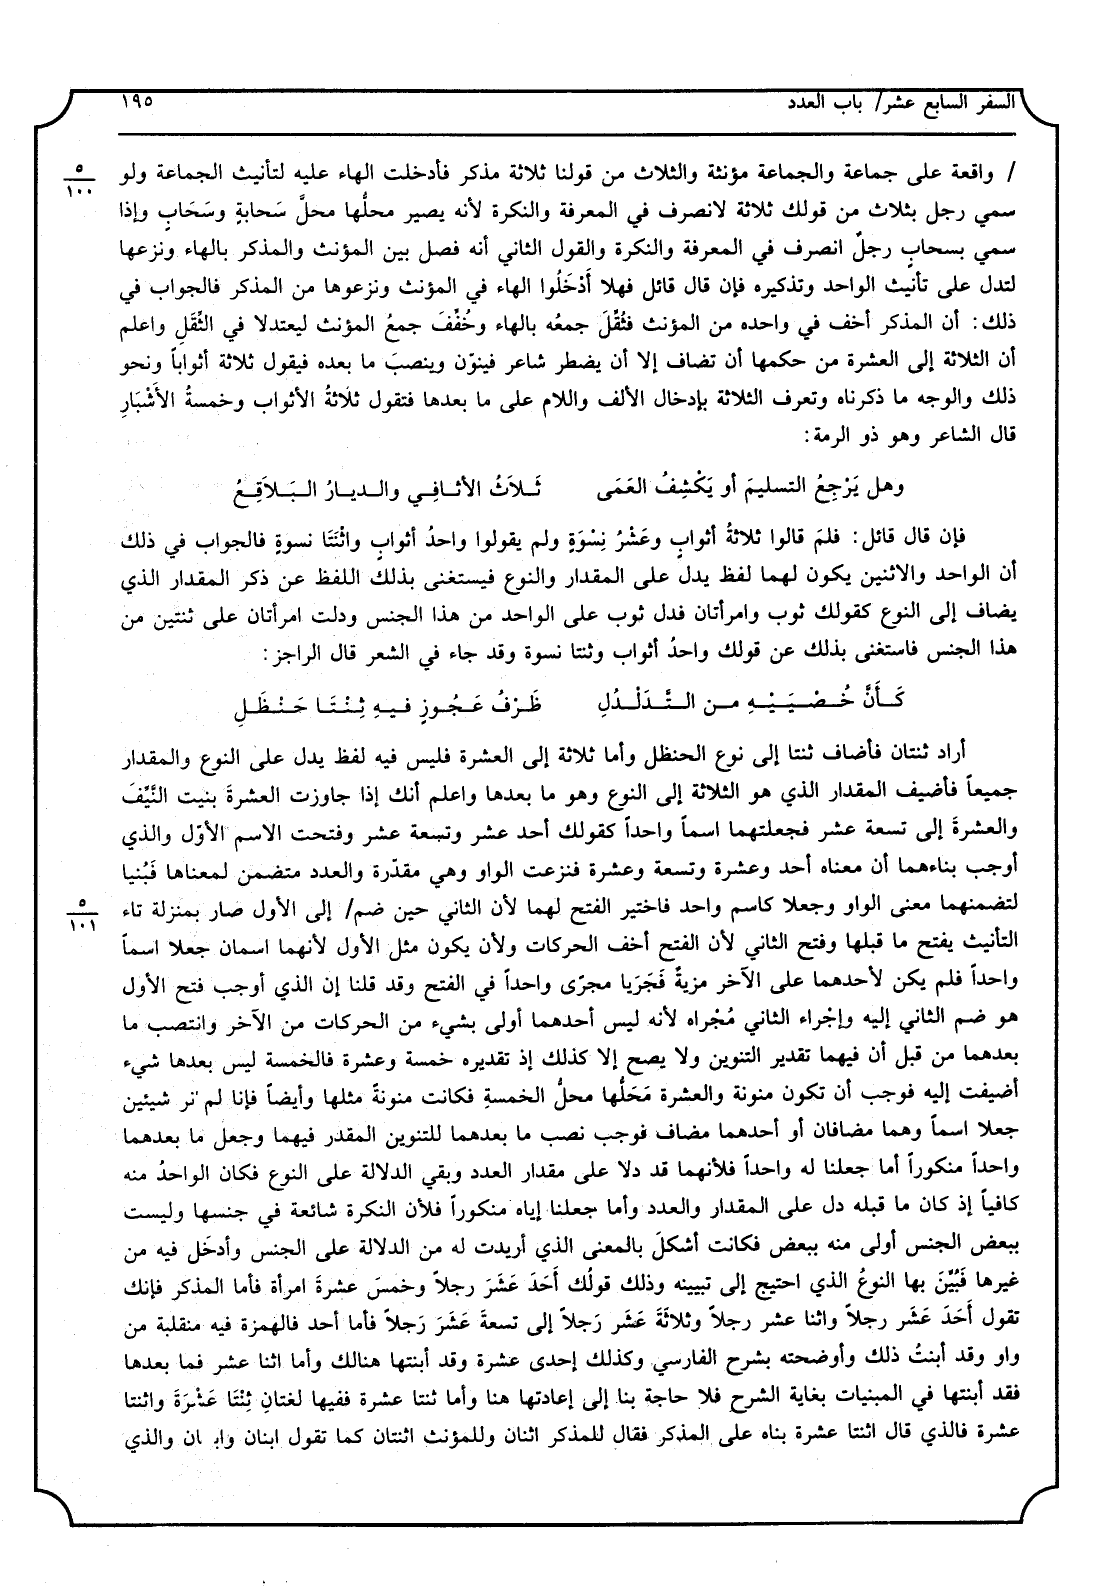 السفر السابع عشر/ باب العدد
١٩٥
٥
١٠٠
/ واقعة على جماعة والجماعة مؤنثة والثلاث من قولنا ثلاثة مذكر فأدخلت الهاء عليه لتأنيث الجماعة ولو
سمي رجل بثلاث من قولك ثلاثة لانصرف في المعرفة والنكرة لأنه يصير محلُّها محلَّ سَحابةٍ وسَحَابٍ وإذا
سمي بسحابٍ رجلٌ انصرف في المعرفة والنكرة والقول الثاني أنه فصل بين المؤنث والمذكر بالهاء ونزعها
لتدل على تأنيث الواحد وتذكيره فإن قال قائل فهلا أَدْخَلُوا الهاء في المؤنث ونزعوها من المذكر فالجواب في
ذلك: أن المذكر أخف في واحده من المؤنث فثُقِّلَ جمعُه بالهاء وخُفِّفَ جمعُ المؤنث ليعتدلا في الثِّقَلِ واعلم
أن الثلاثة إلى العشرة من حكمها أن تضاف إلا أن يضطر شاعر فينوّن وينصبَ ما بعده فيقول ثلاثة أثواباً ونحو
ذلك والوجه ما ذكرناه وتعرف الثلاثة بإدخال الألف واللام على ما بعدها فتقول ثلَاثةُ الأثواب وخمسةُ الأَشْبَارِ
قال الشاعر وهو ذو الرمة:
وهل يَرْجِعُ التسليمَ أو يَكْشِفُ العَمَى ثَلاَثُ الأثافِي والديارُ البَلاَقِعُ
فإن قال قائل: فلمَ قالوا ثلاثةُ أثوابٍ وعَشْرُ نِسْوَةٍ ولم يقولوا واحدُ أثوابٍ واثْنَتَا نسوةٍ فالجواب في ذلك
أن الواحد والاثنين يكون لهما لفظ يدل على المقدار والنوع فيستغنى بذلك اللفظ عن ذكر المقدار الذي
يضاف إلى النوع كقولك ثوب وامرأتان فدل ثوب على الواحد من هذا الجنس ودلت امرأتان على ثنتين من
هذا الجنس فاستغنى بذلك عن قولك واحدُ أثواب وثنتا نسوة وقد جاء في الشعر قال الراجز:
كَأَنَّ خُصْيَيْهِ من التَّدَلْدُلِ ظَرْفُ عَجُوزٍ فيهِ ثِنْتَا حَنْظَلِ
أراد ثنتان فأضاف ثنتا إلى نوع الحنظل وأما ثلاثة إلى العشرة فليس فيه لفظ يدل على النوع والمقدار
جميعاً فأضيف المقدار الذي هو الثلاثة إلى النوع وهو ما بعدها واعلم أنك إذا جاوزت العشرةَ بنيت النَّيِّفَ
والعشرةَ إلى تسعة عشر فجعلتهما اسماً واحداً كقولك أحد عشر وتسعة عشر وفتحت الاسم الأوّل والذي
أوجب بناءهما أن معناه أحد وعشرة وتسعة وعشرة فنزعت الواو وهي مقدّرة والعدد متضمن لمعناها فَبُنيا
لتضمنهما معنى الواو وجعلا كاسم واحد فاختير الفتح لهما لأن الثاني حين ضم/ إلى الأول صار بمنزلة تاء
٥
١٠١
التأنيث يفتح ما قبلها وفتح الثاني لأن الفتح أخف الحركات ولأن يكون مثل الأول لأنهما اسمان جعلا اسماً
واحداً فلم يكن لأحدهما على الآخر مزيةٌ فَجَرَيا مجرًى واحداً في الفتح وقد قلنا إن الذي أوجب فتح الأول
هو ضم الثاني إليه وإجْراء الثاني مُجْراه لأنه ليس أحدهما أولى بشيء من الحركات من الآخر وانتصب ما
بعدهما من قبل أن فيهما تقدير التنوين ولا يصح إلا كذلك إذ تقديره خمسة وعشرة فالخمسة ليس بعدها شيء
أضيفت إليه فوجب أن تكون منونة والعشرة مَحَلُّها محلُّ الخمسةِ فكانت منونةً مثلها وأيضاً فإنا لم نر شيئين
جعلا اسماً وهما مضافان أو أحدهما مضاف فوجب نصب ما بعدهما للتنوين المقدر فيهما وجعل ما بعدهما
واحداً منكوراً أما جعلنا له واحداً فلأنهما قد دلا على مقدار العدد وبقي الدلالة على النوع فكان الواحدُ منه
كافياً إذ كان ما قبله دل على المقدار والعدد وأما جعلنا إياه منكوراً فلأن النكرة شائعة في جنسها وليست
ببعض الجنس أولى منه ببعض فكانت أشكلَ بالمعنى الذي أريدت له من الدلالة على الجنس وأدخَل فيه من
غيرها فَبُيِّنَ بها النوعُ الذي احتيج إلى تبيينه وذلك قولُك أَحَدَ عَشَرَ رجلاً وخمسَ عشرةَ امرأة فأما المذكر فإنك
تقول أَحَدَ عَشَر رجلاً واثنا عشر رجلاً وثلاثَةَ عَشَر رَجلاً إلى تسعةَ عَشَرَ رَجلاً فأما أحد فالهمزة فيه منقلبة من
واو وقد أبنتُ ذلك وأوضحته بشرح الفارسي وكذلك إحدى عشرة وقد أبنتها هنالك وأما اثنا عشر فما بعدها
فقد أبنتها في المبنيات بغاية الشرح فلا حاجة بنا إلى إعادتها هنا وأما ثنتا عشرة ففيها لغتانِ ثِنْتَا عَشْرَةَ واثنتا
عشرة فالذي قال اثنتا عشرة بناه على المذكر فقال للمذكر اثنان وللمؤنث اثنتان كما تقول ابنان والذي